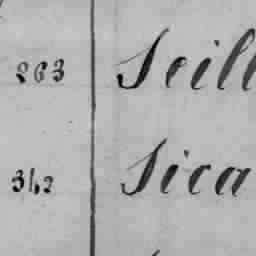 263 Seill
342 Sica